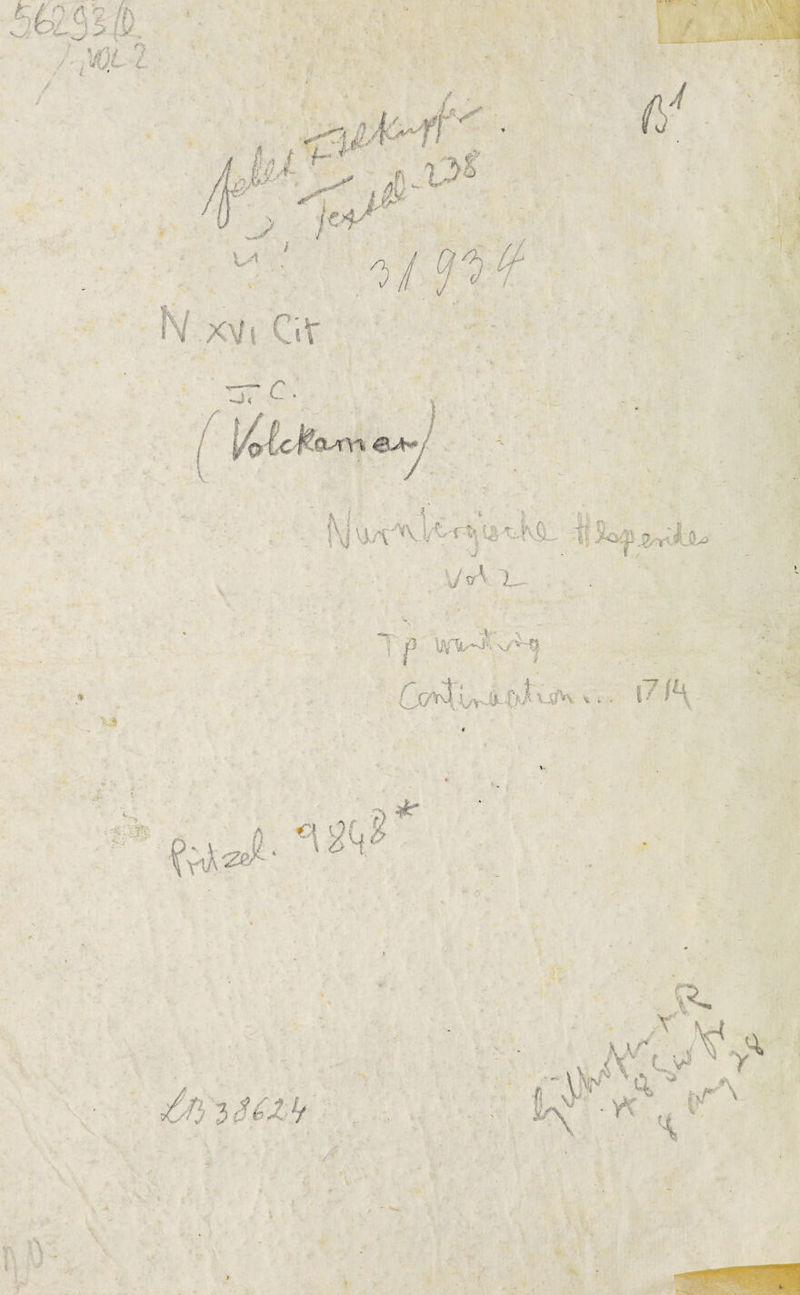 56293/D
VOL 2
B1
fehlt Titelkupfer
u. Textbl. 238
31934
N XVI Cit
J. C.
(Volckamer)
Nurnbergische Hesperides
Vol 2
Tp wanting
Continuation... 1714
Pritzel. 9848*
LB 38624
Gilhofer + R
8 Aug 28